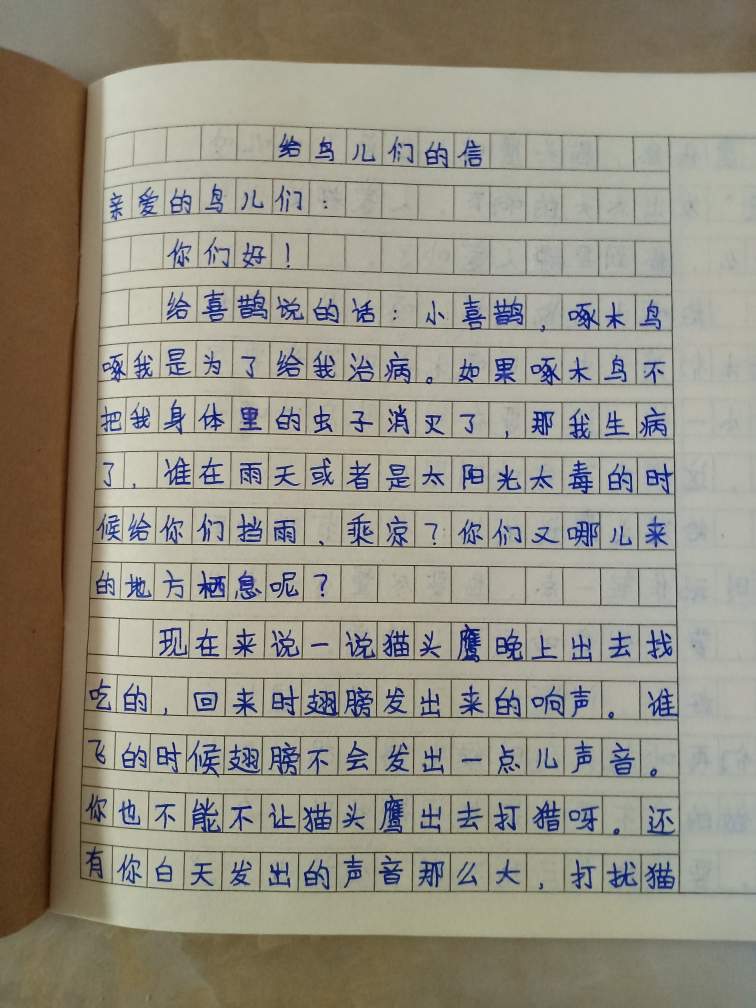 给鸟儿们的信
亲爱的鸟儿们：
你们好！
给喜鹊说的话：小喜鹊，啄木鸟
啄我是为了给我治病。如果啄木鸟不
把我身体里的虫子消灭了，那我生病
了，谁在雨天或者是太阳光太毒的时
候给你们挡雨、乘凉？你们又哪儿来
的地方栖息呢？
现在来说一说猫头鹰晚上出去找
吃的，回来时翅膀发出来的响声。谁
飞的时候翅膀不会发出一点儿声音。
你也不能不让猫头鹰出去打猎呀。还
有你白天发出的声音那么大，打扰猫